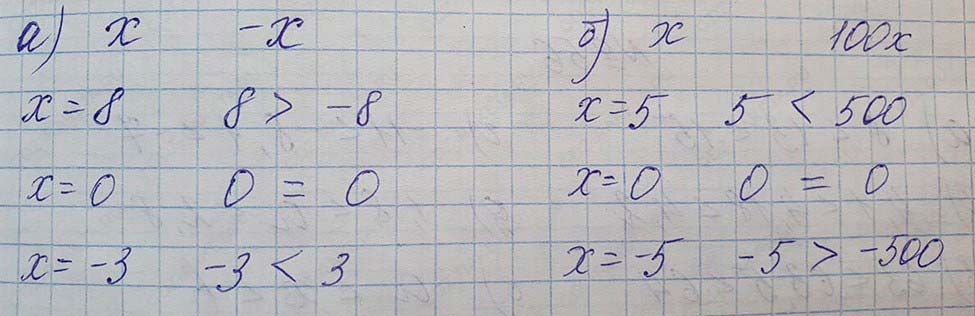 а) x -x б) x 100x
x = 8 8 > -8 x = 5 5 < 500
x = 0 0 = 0 x = 0 0 = 0
x = -3 -3 < 3 x = -5 -5 > -500